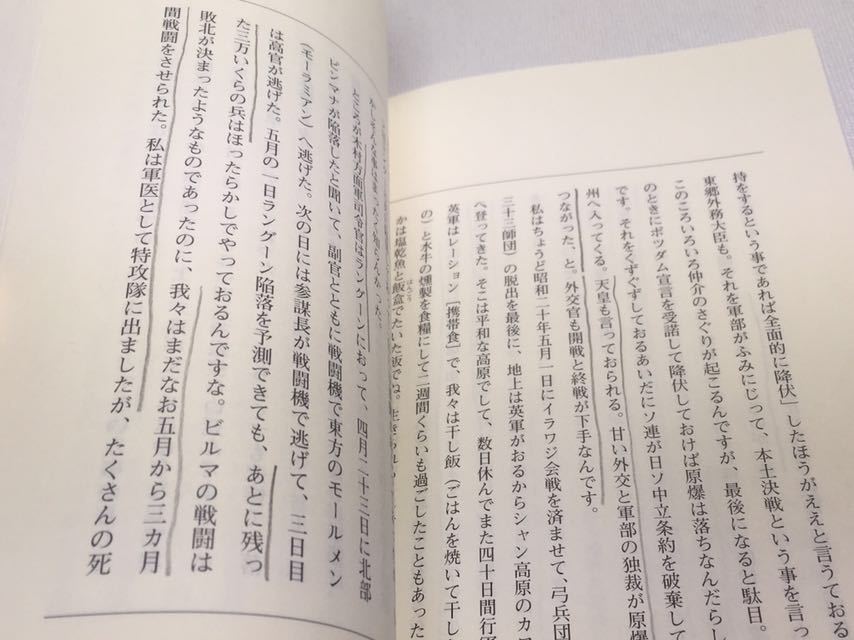 持をするという事であれば全面的に降伏」したほうがええと言うておる
東郷外務大臣も。それを軍部がふみにじって、本土決戦という事を言っ
このころいろいろ仲介のさぐりが起こるんですが、最後になると駄目。
のときにポツダム宣言を受諾して降伏しておけば原爆は落ちなんだらし
です。それをくずぐずしておるあいだにソ連が日ソ中立条約を破棄して
州へ入ってくる。天皇も言っておられる。甘い外交と軍部の独裁が原爆
つながった、と。外交官も開戦と終戦が下手なんです。
私はちょうど昭和二十年五月一日にイラワジ会戦を済ませて、弓兵団
三十三師団）の脱出を最後に、地上は英軍がおるからシャン高原のカロ
へ登ってきた。そこは平和な高原でして、数日休んでまた四十日間行軍
英軍はレーション［携帯食］で、我々は干し飯（ごはんを焼いて干し
の）と水牛の燻製を食糧にして二週間くらいも過ごしたこともあった
かは塩乾魚と飯盒でたいた飯でね。
ところが木村方面軍司令官はラングーンにおって、四月二十三日に北部
ピンマナが陥落したと聞いて、副官とともに戦闘機で東方のモールメン
（モーラミアン）へ逃げた。次の日には参謀長が戦闘機で逃げて、三日目
は高官が逃げた。五月の一日ラングーン陥落を予測できても、あとに残っ
た三万いくらの兵はほったらかしでやっておるんですな。ビルマの戦闘は
敗北が決まったようなものであったのに、我々はまだなお五月から三カ月
間戦闘をさせられた。私は軍医として特攻隊に出ましたが、たくさんの死